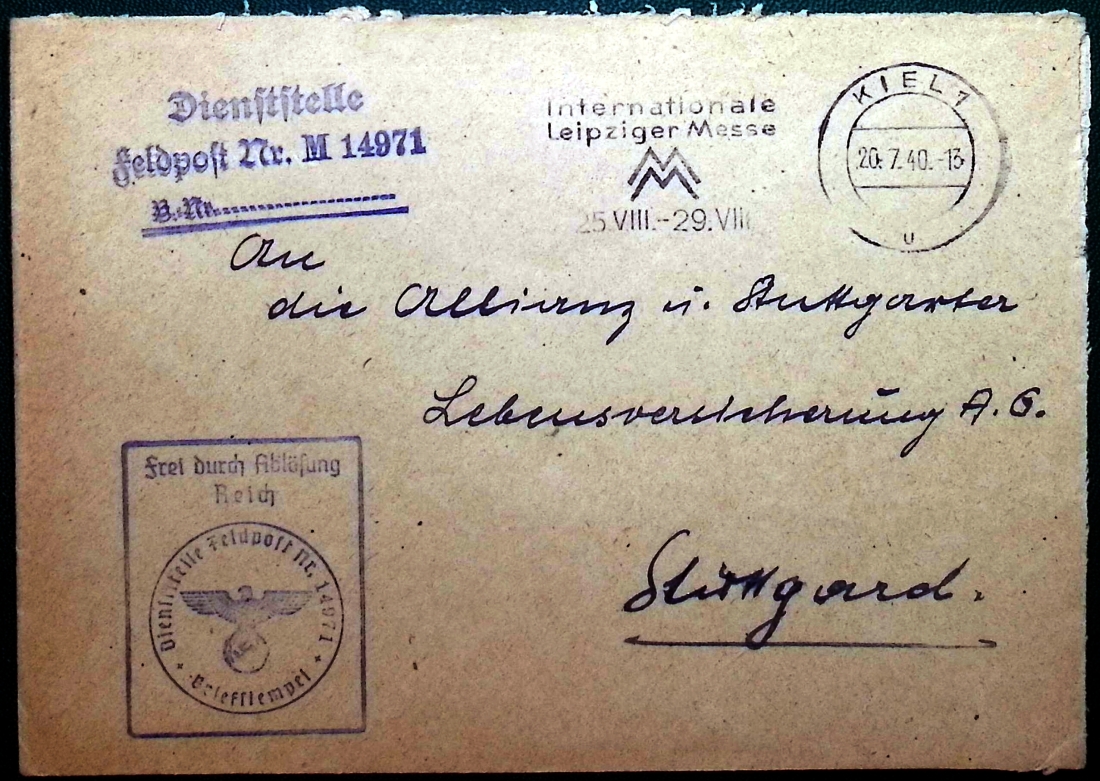 Dienststelle
Feldpost Nr. M 14971
B.-Nr.
Internationale
Leipziger Messe
25.VIII.-29.VIII
KIEL 1
20.7.40.-13
u
An
die Allianz u. Stuttgarter
Lebensversicherung A.G.
Stuttgard.
Frei durch Ablösung
Reich
Dienststelle Feldpost Nr. 14971
Briefstempel